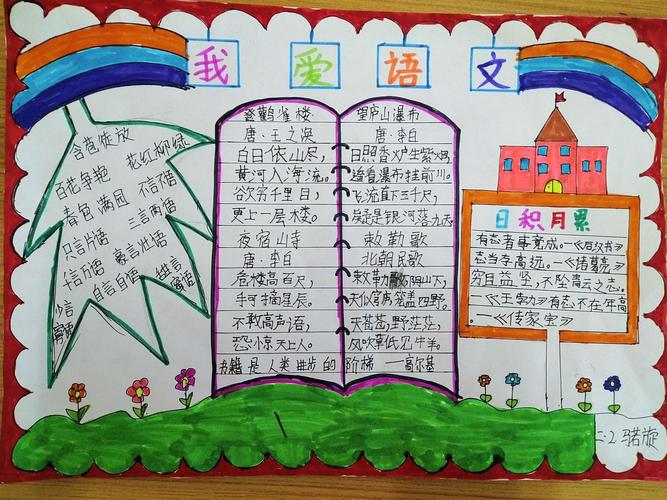 我爱语文
含苞绽放
花红柳绿
百花争艳
不言不语
春色满园
三言两语
只言片语
千言万语
豪言壮语
自言自语
登鹳雀楼
唐·王之涣
白日依山尽，
黄河入海流。
欲穷千里目，
更上一层楼。
夜宿山寺
唐·李白
危楼高百尺，
手可摘星辰。
不敢高声语，
恐惊天上人。
望庐山瀑布
唐·李白
日照香炉生紫烟，
遥看瀑布挂前川。
飞流直下三千尺，
疑是银河落九天。
敕勒歌
北朝民歌
敕勒川，阴山下，
天似穹庐，笼盖四野。
天苍苍，野茫茫，
风吹草低见牛羊。
书籍是人类进步的阶梯 —高尔基
日积月累
有志者事竟成。—《后汉书》
志当存高远。—《诸葛亮》
穷且益坚，不坠青云之志。
—《王勃》有志不在年高
—《传家宝》
二.2 骆旋